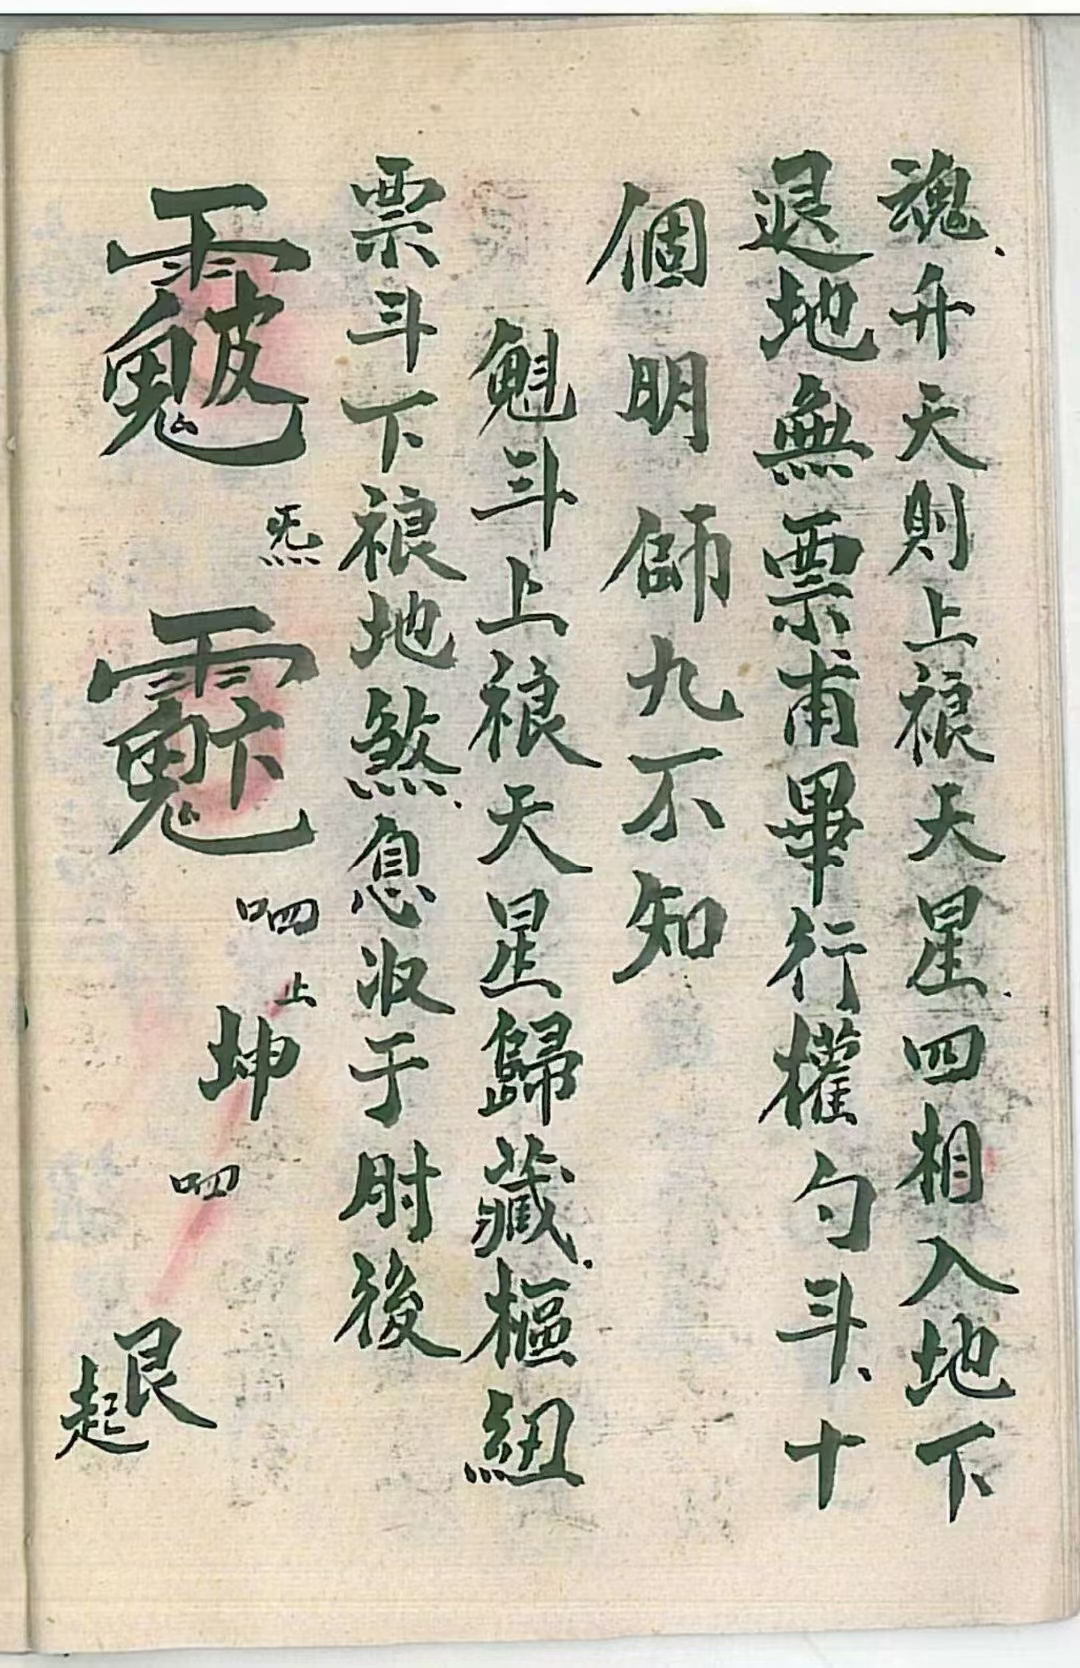 魂升天則上裉天星四相入地下
退地無票甫畢行權勺斗十
個明師九不知
魁斗上裉天星歸藏樞紐
票斗下裉地煞息汊于肘後
炁
呬
上
坤
呬
艮
起